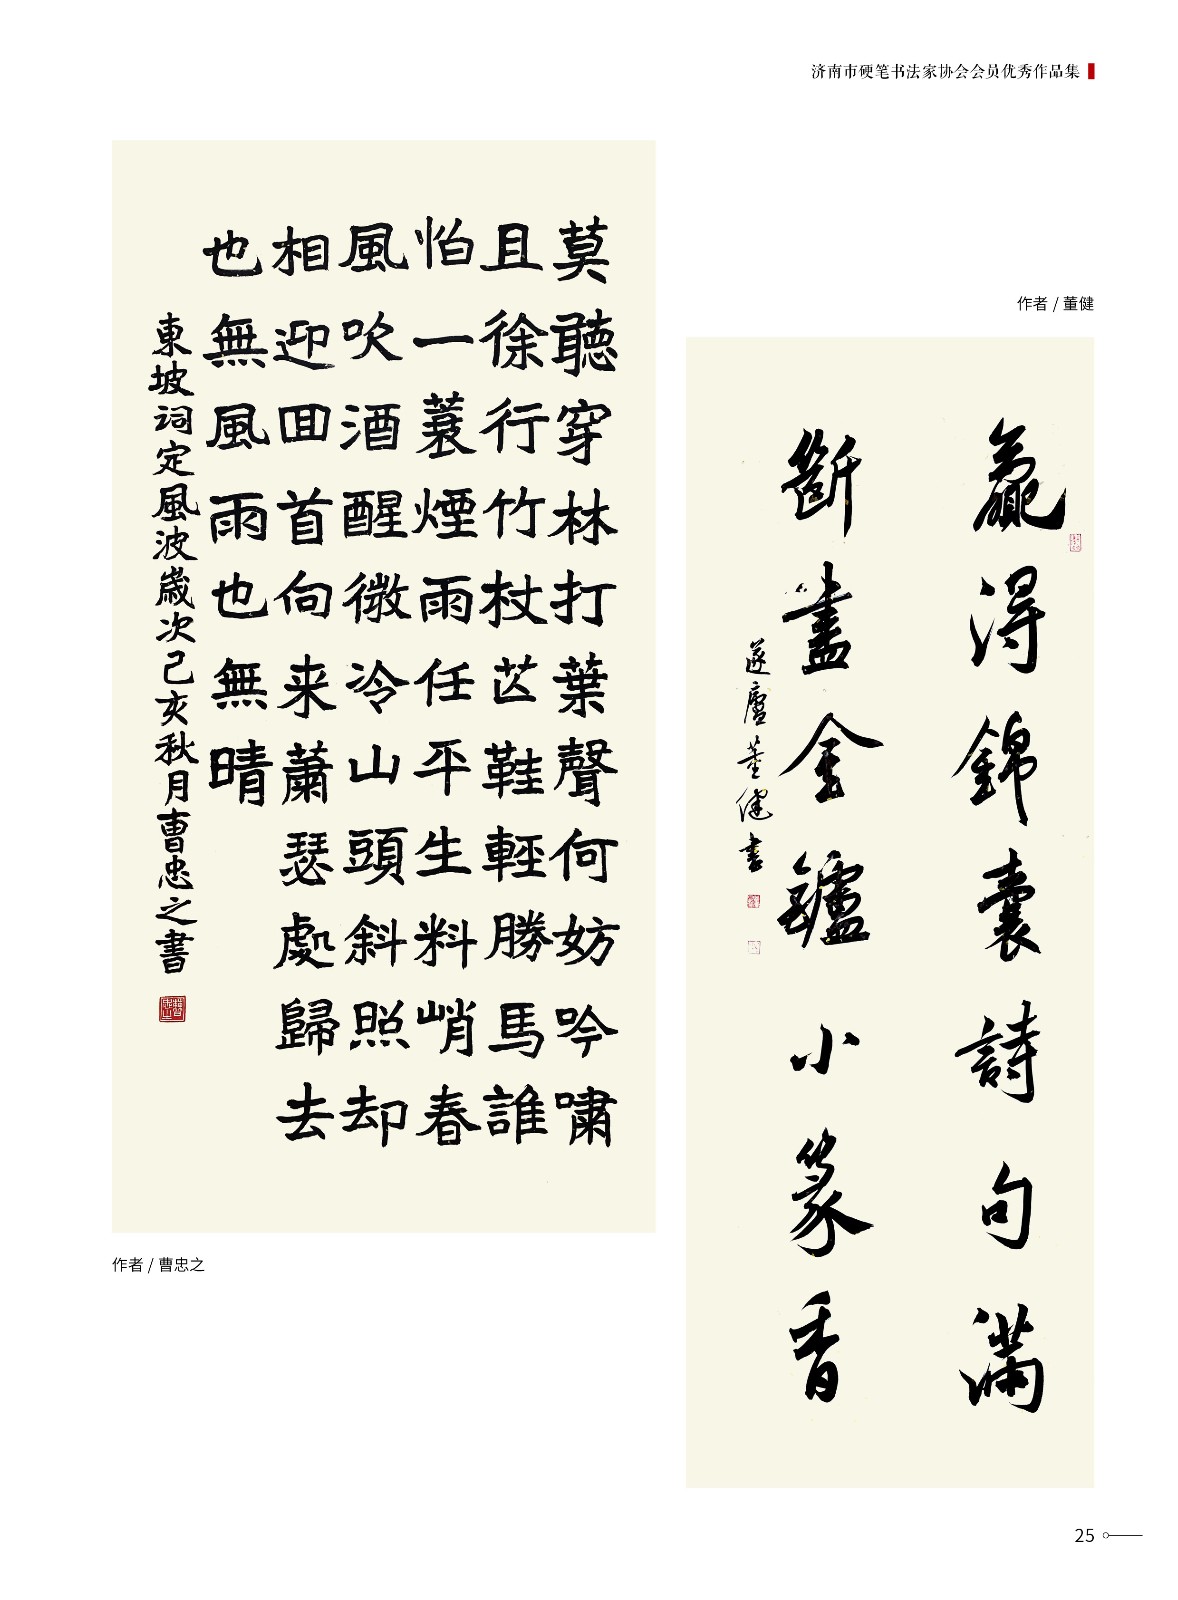 济南市硬笔书法家协会会员优秀作品集
莫聽穿林打葉聲何妨吟嘯
且徐行竹杖芒鞋輕勝馬誰
怕一蓑煙雨任平生料峭春
風吹酒醒微冷山頭斜照却
相迎回首向来蕭瑟處歸去
也無風雨也無晴
東坡詞定風波歲次己亥秋月曹忠之書
作者 / 曹忠之
作者 / 董健
贏得錦囊詩句滿
斷盡金鑪小篆香
遂廬董健書
25